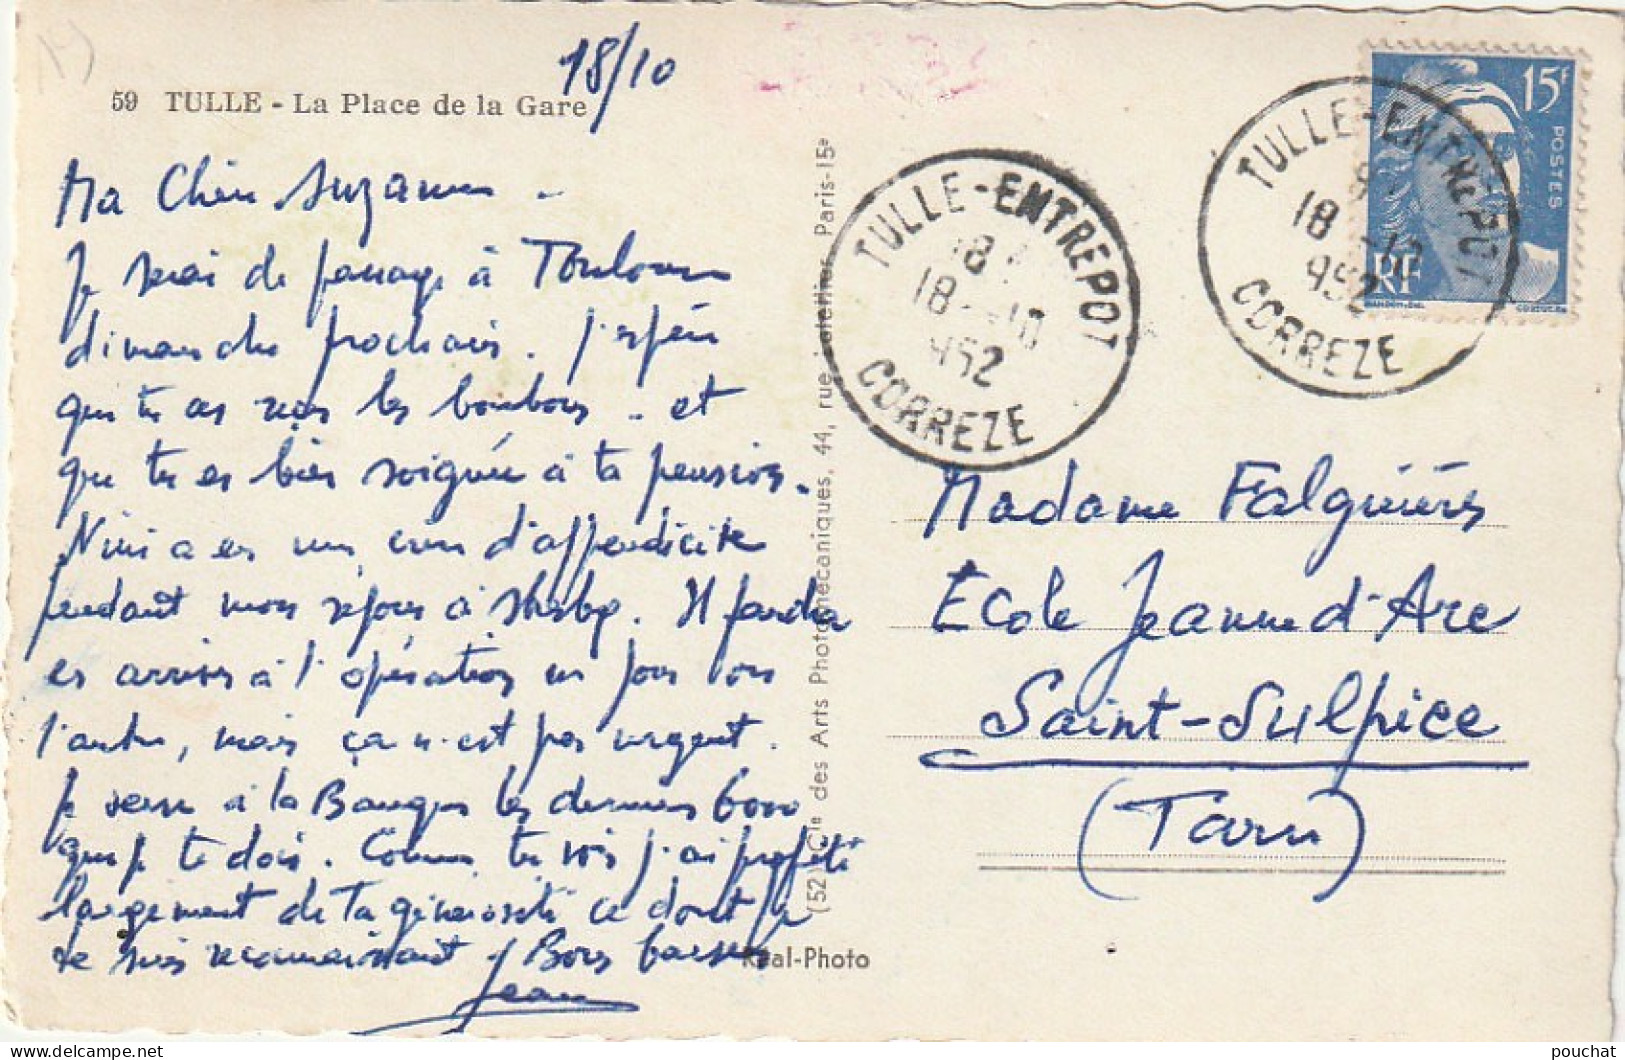 18/10
59 TULLE - La Place de la Gare
Ma Chère Suzanne -
Je serai de passage à Toulouse
dimanche prochain. J'espère
que tu as reçu les bonbons - et
que tu es bien soignée à ta pension.
Nini a eu une crise d'appendicite
pendant mon séjour à Strbg. Il faudra
en arriver à l'opération un jour ou
l'autre, mais ça n'est pas urgent.
Je verse à la Banque les derniers 6000
que je te dois. Comme tu vois j'ai profité
largement de ta générosité ce dont je
te suis reconnaissant. Bons baisers
Jean
(52) Cie des Arts Photomécaniques, 44, rue Letellier Paris-15e
Réal-Photo
TULLE-ENTREPOT
18
18-10
952
CORREZE
TULLE-ENTREPOT
18-10
952
CORREZE
15F
POSTES
RF
GANDON
CORTOT
Madame Falguières
Ecole Jeanne d'Arc
Saint-Sulpice
(Tarn)
pouchat